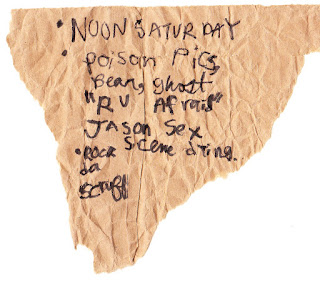 • NOON SATURDAY
• poison Pics,
Bear, ghost
"R U Afraid"
JASON Sex
• ROCK Scene
da
scruff